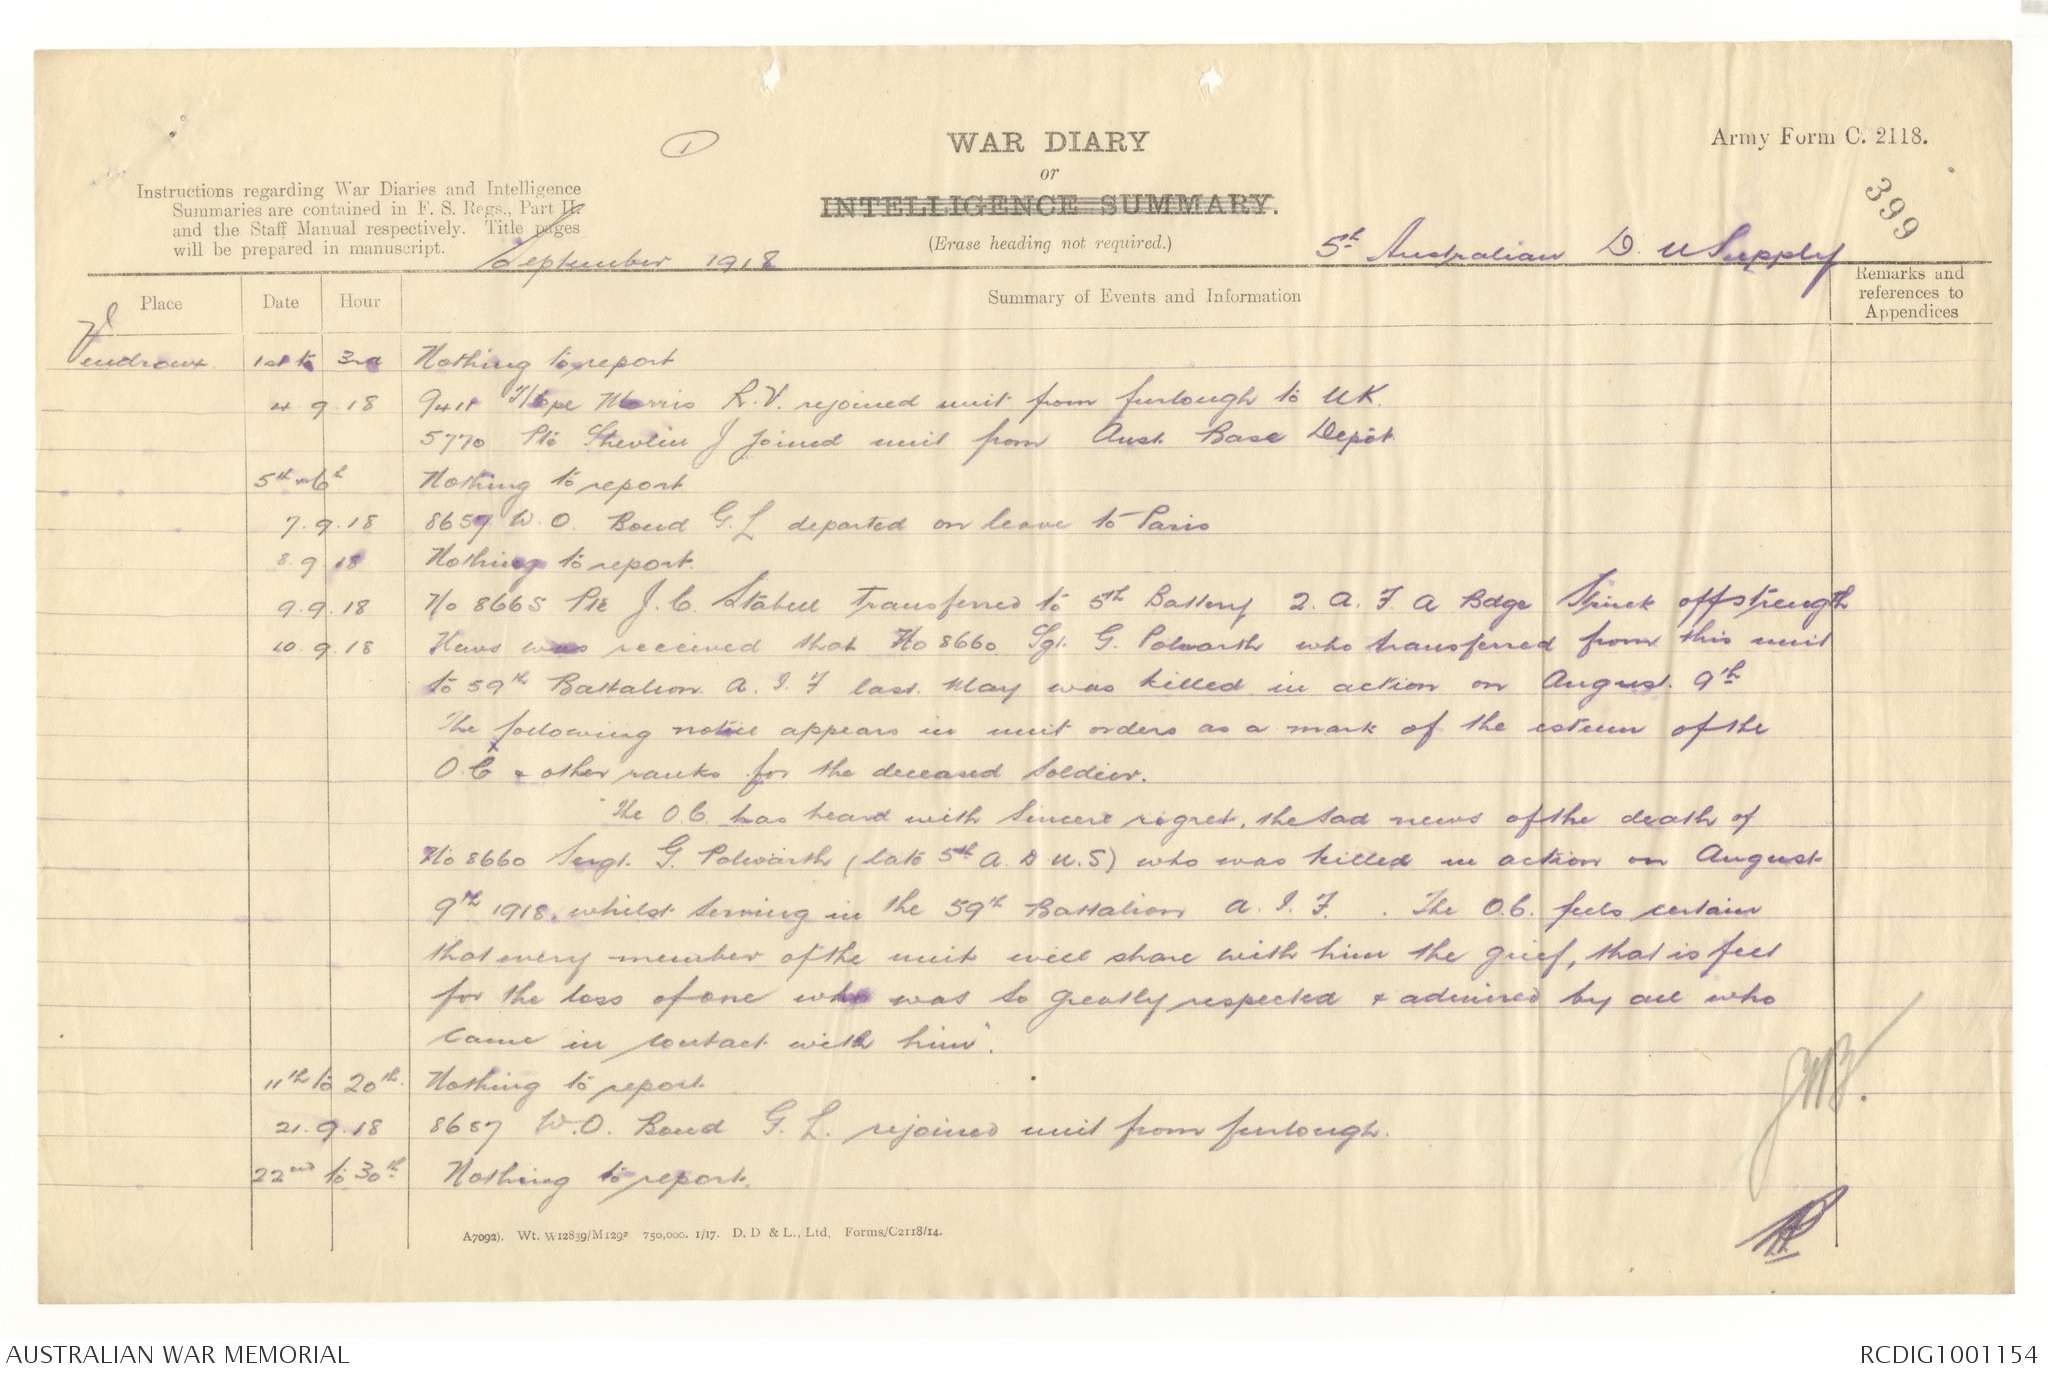 1
WAR DIARY
or
INTELLIGENCE SUMMARY.
(Erase heading not required.)
Army Form C. 2118.
399
Instructions regarding War Diaries and Intelligence
Summaries are contained in F. S. Regs., Part II.
and the Staff Manual respectively. Title pages
will be prepared in manuscript.
September 1918
5th Australian D. U Supply
Place Date Hour Summary of Events and Information Remarks and references to Appendices
Vendroux 1st to 3rd Nothing to report
4.9.18 9411 Morris R.V. rejoined unit from furlough to UK.
5770 Pte Shevlin J joined unit from Aust. Base Depôt
5th 6th Nothing to report
7.9.18 8657 W.O. Bond G.L departed on leave to Paris
8.9.18 Nothing to report.
9.9.18 No 8665 Pte J.C. Transferred to 5th Battery 2. A. F. A Bdge Struck off strength
10.9.18 News was received that No 8660 Sgt. G. Polwarth who transferred from this unit
to 59th Battalion A. I. F last May was killed in action on August 9th
The following notice appears in unit orders as a mark of the esteem of the
O.C & other ranks for the deceased soldier.
"The O.C. has heard with sincere regret, the sad news of the death of
No 8660 Sergt. G. Polwarth (late 5th A. D U. S) who was killed in action on August
9th 1918, whilst serving in the 59th Battalion A. I. F. The O.C. feels certain
that every member of the unit will share with him the grief, that is felt
for the loss of one who was so greatly respected & admired by all who
came in contact with him".
11th to 20th. Nothing to report
21.9.18 8657 W.O. Bond G. L. rejoined unit from furlough.
22nd to 30th Nothing to report.
A7092). Wt. W12839/M1292 750,000. 1/17. D. D & L., Ltd. Forms/C2118/14.
AUSTRALIAN WAR MEMORIAL
RCDIG1001154